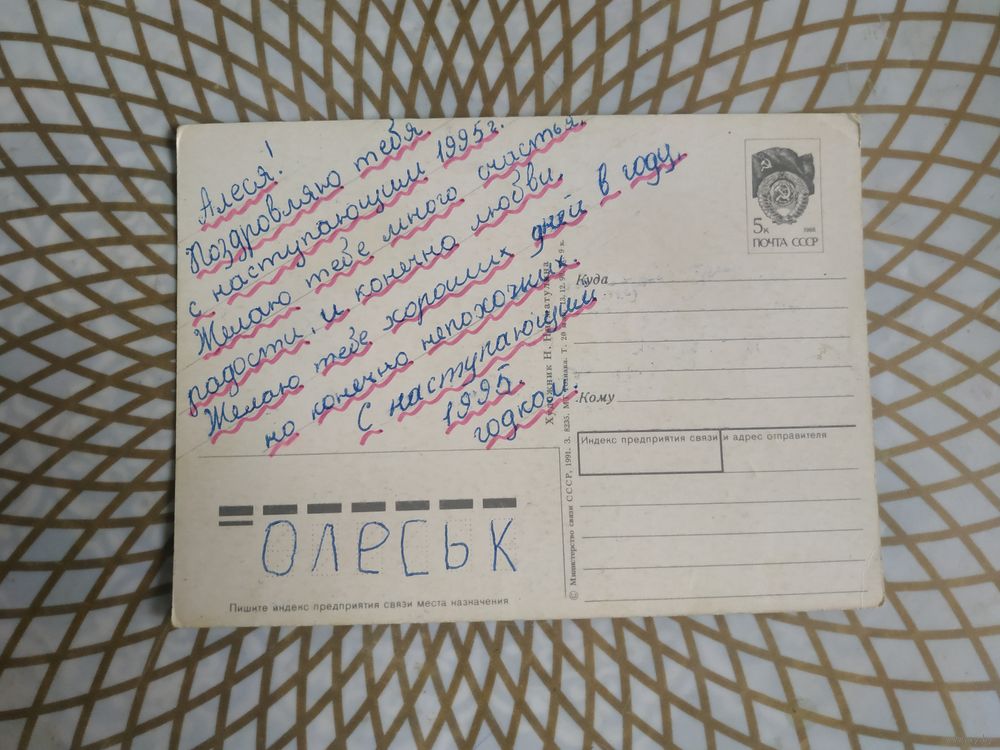 Алеся!
Поздровляю тебя
с наступающим 1995г.
Желаю тебе много счастья,
радости, и конечна любви.
Желаю тебе хороших дней в году,
но конечно непохочних.
С наступающим
1995.
годком.
5к 1988
ПОЧТА СССР
Куда
Кому
Индекс предприятия связи и адрес отправителя
ОЛЕСЬК
Пишите индекс предприятия связи места назначения
Художник Н.
© Министерство связи СССР, 1991. З. 8235.